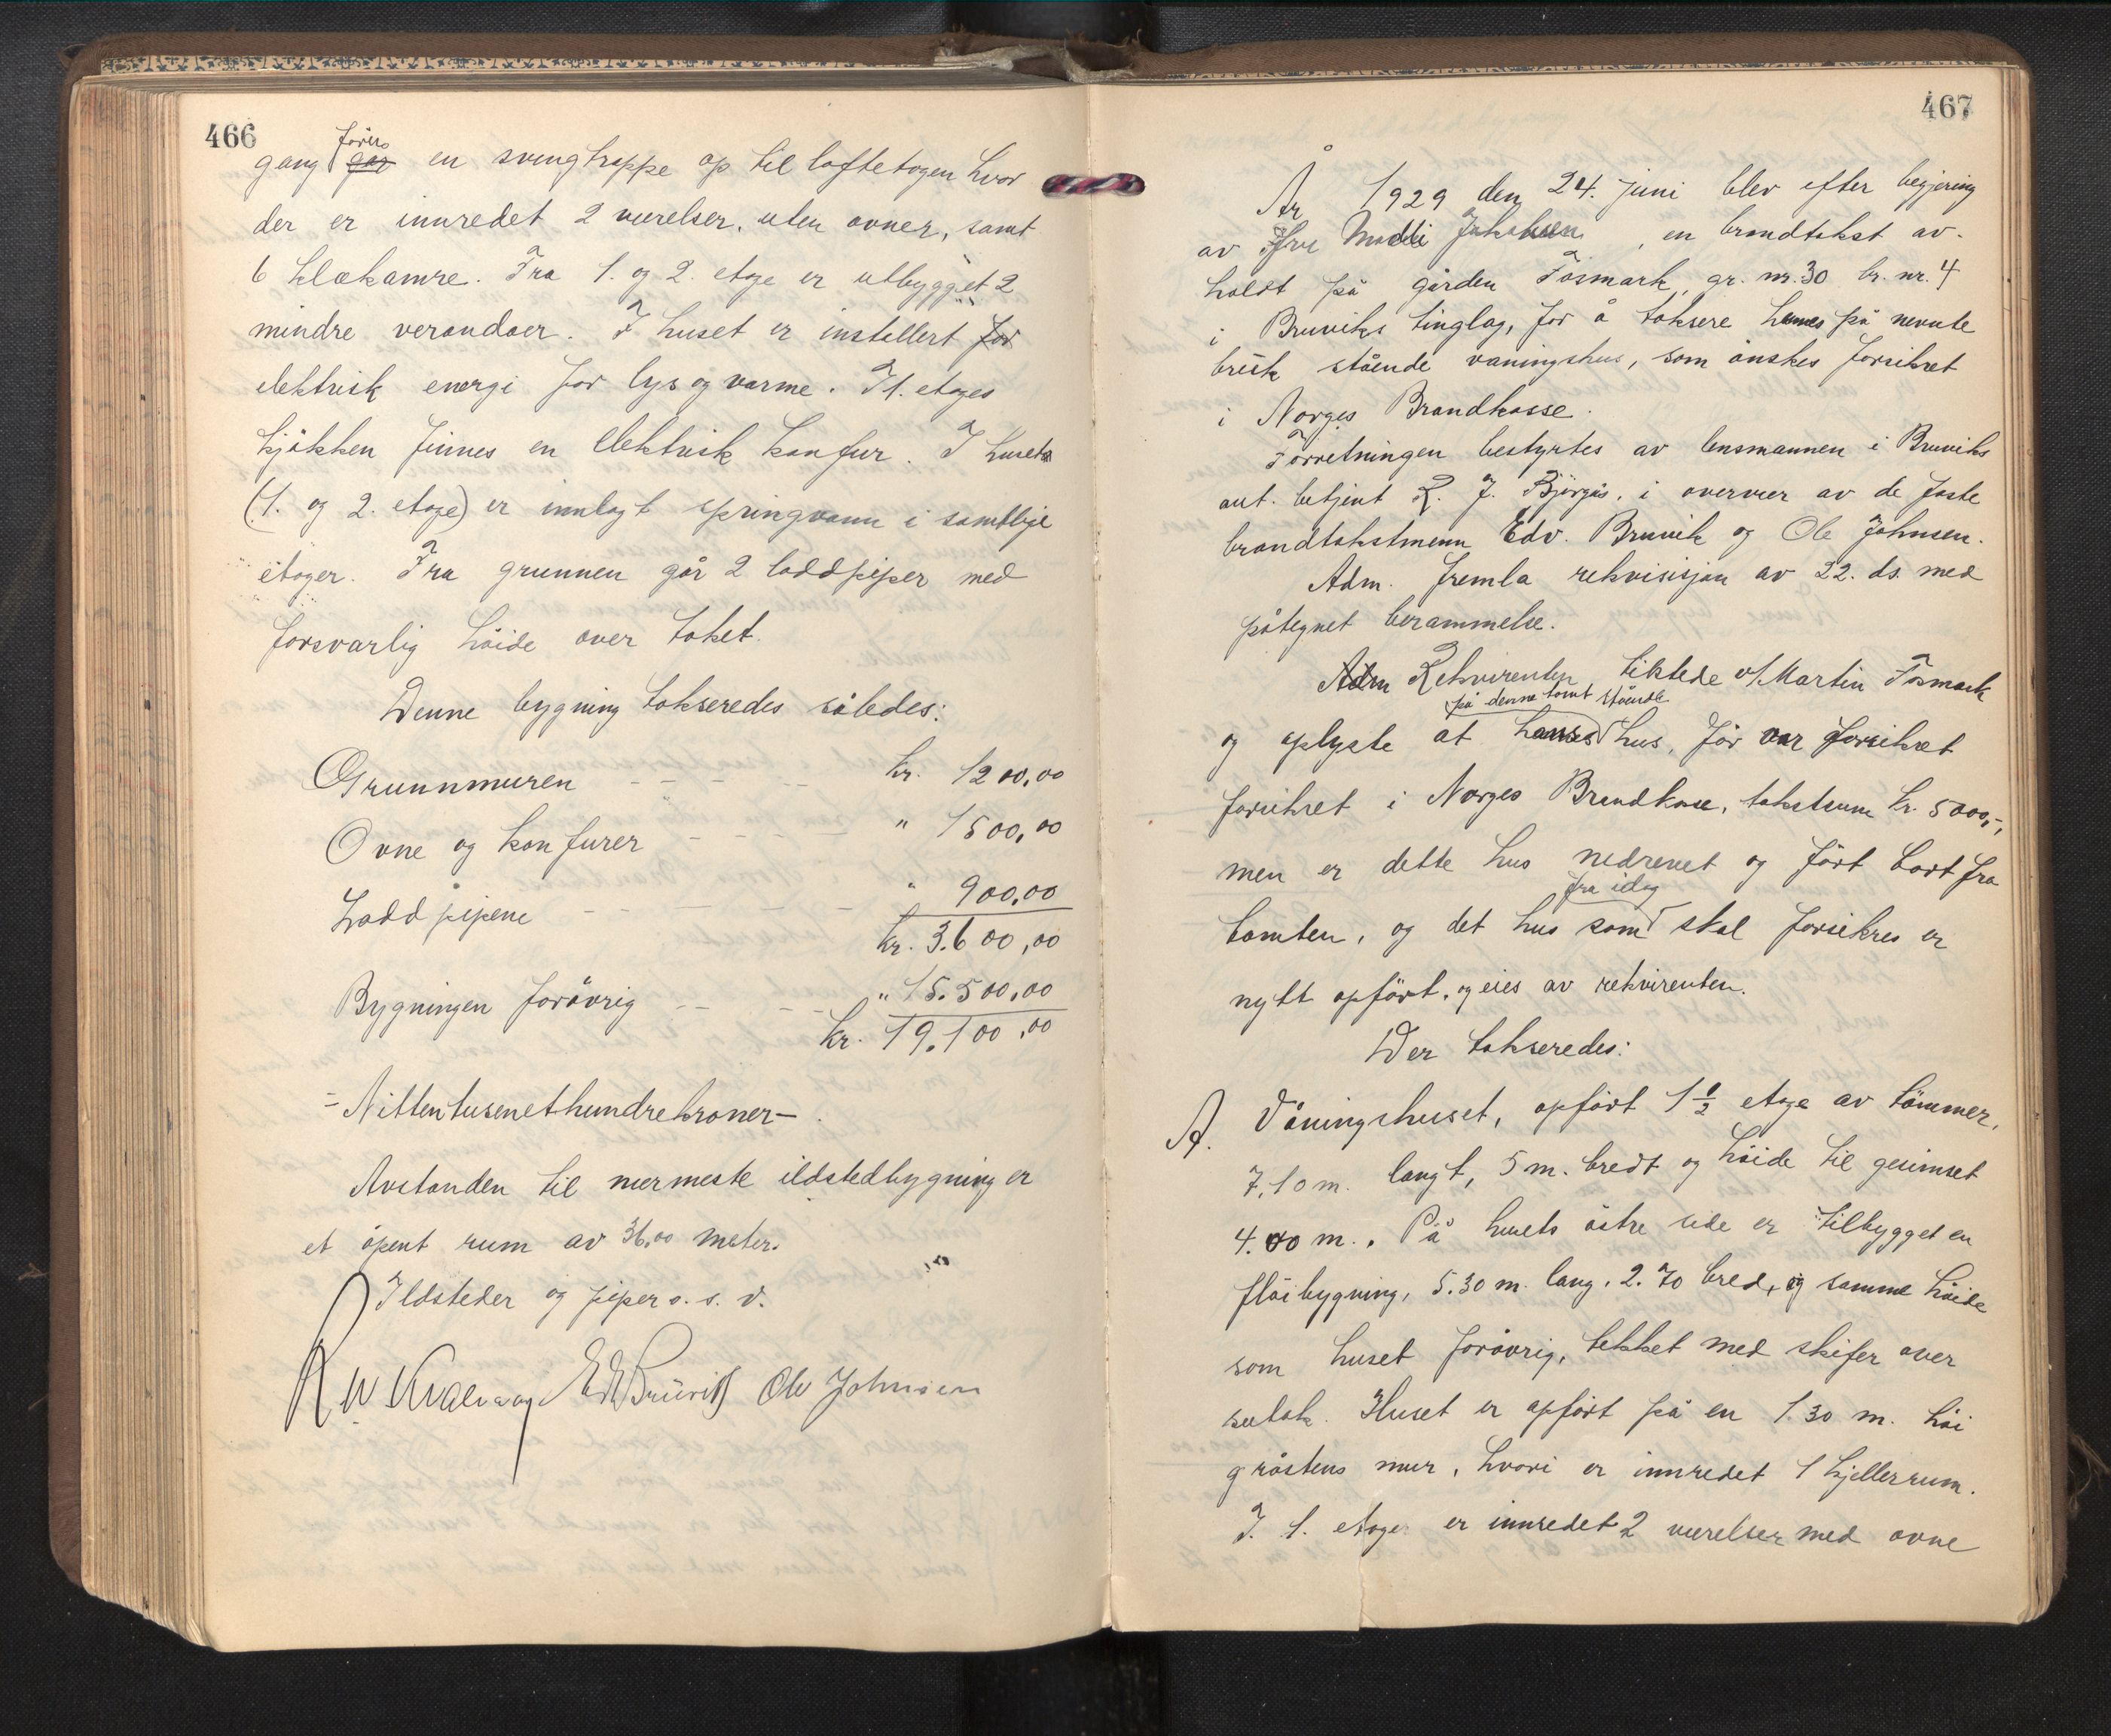 466
føres
gang går en svingtrappe op til loftetagen hvor
der er innredet 2 værelser, uten ovner, samt
6 klækamre. Fra 1. og 2. etage er utbygget 2
mindre verandaer. I huset er installert for
elektrisk energi for lys og varme. I 1. etages
kjøkken finnes en elektrisk konfur. I husets
(1. og 2. etage) er innlagt springvann i samtlige
etager. Fra grunnen går 2 loddpiper med
forsvarlig høide over taket.
Denne bygning takseredes således:
Grunnmuren - - - - kr. 1200,00
Ovne og konfurer - - - - " 1500,00
Loddpipene - - - - - " 900,00
kr. 3.600,00
Bygningen forøvrig - - - - " 15.500,00
kr. 19.100,00
= Nittentusenethundrekroner -
Avstanden til nærmeste ildstedbygning er
et åpent rum av 36,00 meter.
Ildsteder og piper o. s. v.
Edv Bruvik Ole Johnsen
467
År 1929 den 24. juni blev efter begjæring
av Fru Jakobsen, en brandtakst av-
holdt på gården Fosmark, gr. nr. 30 br. nr. 4
i Bruviks tinglag, for å taksere hennes på nevnte
bruk stående våningshus, som ønskes forsikret
i Norges Brandkasse.
Forretningen bestyrtes av lensmannen i Bruviks
aut. betjent R. J. Bjørgås, i overvær av de faste
brandtakstmenn Edv. Bruvik og Ole Johnsen.
Adm. fremla rekvisisjon av 22. ds. med
påtegnet berammelse.
Adm Rekvirenten tilstede v/ Martin Fosmark
på denne tomt stående
og oplyste at hus, før var forsikret
forsikret i Norges Brandkasse, takstsum kr. 5000,-,
men er dette hus nedrevet og ført bort fra
fra idag
tomten, og det hus som skal forsikres er
nytt opført, og eies av rekvirenten.
Der takseredes:
A. Våningshuset, opført 1½ etage av tømmer,
7,10 m. langt, 5 m. bredt og høide til gesimset
4.00 m. På husets østre side er tilbygget en
fløibygning, 5.30 m. lang, 2.70 bred, og samme høide
som huset forøvrig, tekket med skifer over
sutak. Huset er opført på en 1.30 m. høi
gråstens mur, hvori er innredet 1 kjellerrum.
I. 1. etage er innredet 2 værelser med ovne